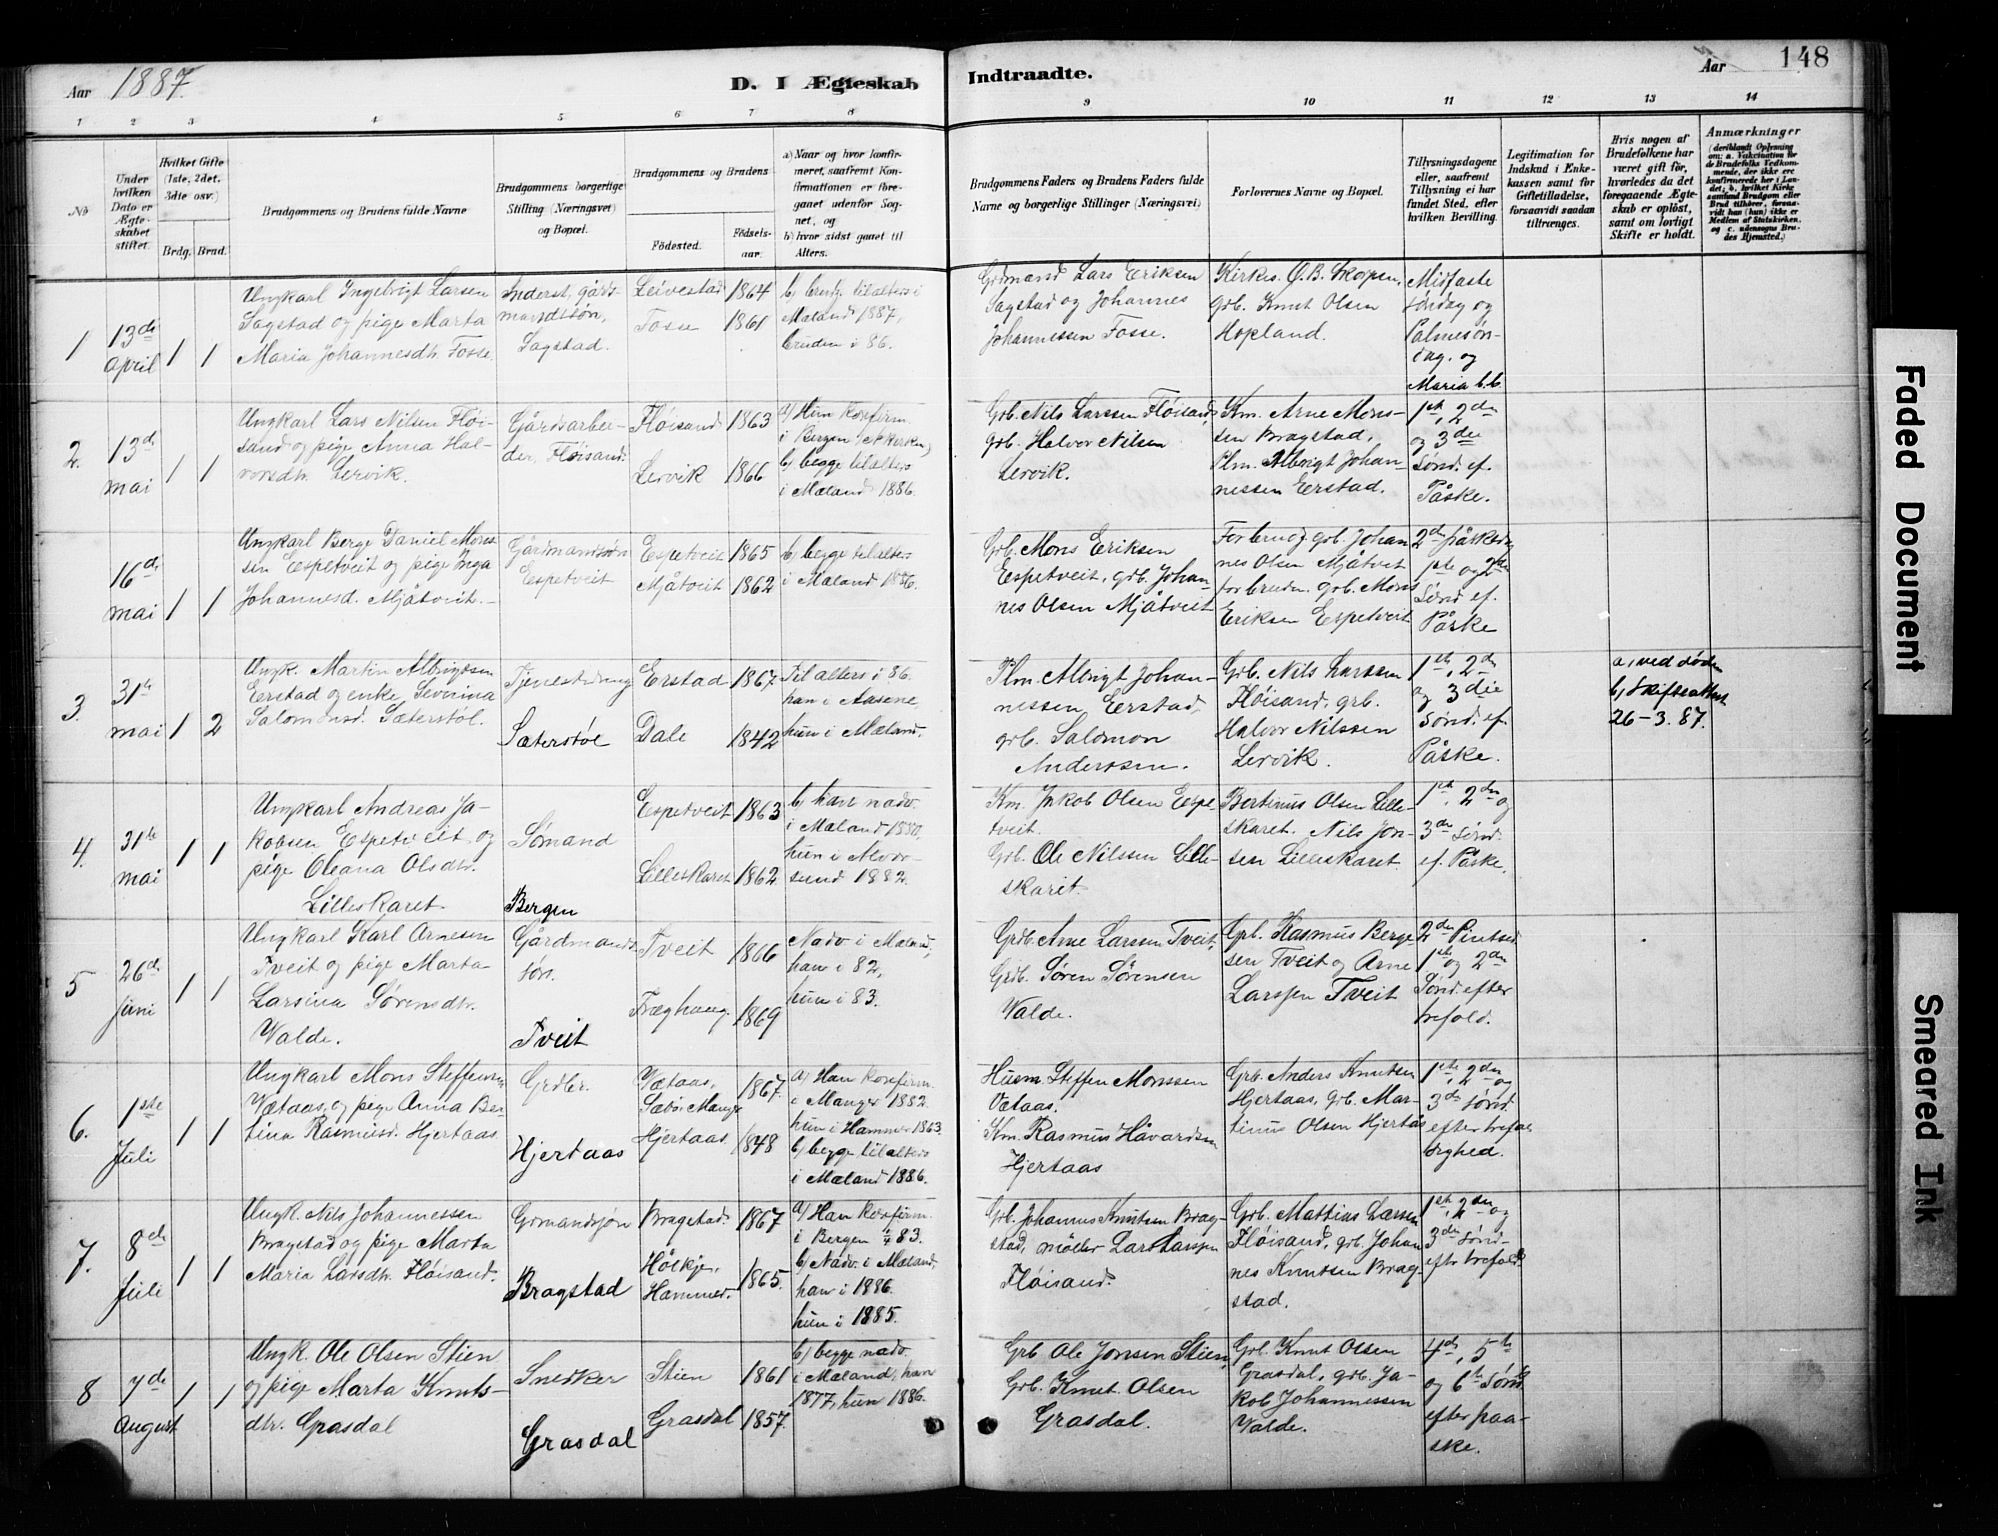 Aar 1887.
D. I Ægteskab
Indtraadte.
Aar
148
1
2
3
4
5
6
7
8
9
10
11
12
13
14
No
Under
hvilken
Dato er
Ægte-
skabet
stiftet.
Hvilket Gifte
(1ste, 2det,
3die osv.)
Brdg. Brud.
Brudgommens og Brudens fulde Navne
Brudgommens borgerlige
Stilling (Næringsvei)
og Bopæl.
Brudgommens og Brudens
Fødested.
Fødsels-
aar.
a) Naar og hvor konfir-
meret, saafremt Kon-
firmationen er fore-
gaaet udenfor Sog-
net, og
b) hvor sidst gaaet til
Alters.
Brudgommens Faders og Brudens Faders fulde
Navne og borgerlige Stillinger (Næringsvei)
Forlovernes Navne og Bopæl.
Tillysningsdagene
eller, saafremt
Tillysning ei har
fundet Sted, efter
hvilken Bevilling.
Legitimation for
Indskud i Enke-
kassen samt for
Giftetilladelse,
forsaavidt saadan
tiltrænges.
Hvis nogen af
Brudefolkene har
været gift før,
hvorledes da det
foregaaende Ægte-
skab er opløst,
samt om lovligt
Skifte er holdt.
Anmærkninger
(deriblandt Oplysning
om: a. Vakcination for
de Brudefolks Vedkom-
mende, der ikke ere
konfirmerede her i Lan-
det; b. hvilket Kirke
samfund Brudgom eller
Brud tilhører, forsaa-
vidt han (hun) ikke er
Medlem af Statskirken,
og c. udensogns Bru-
des Hjemsted.)
1
13de
April
1 1
Ungkarl Ingebrigt Larsen
Sagstad og pige Marta
Maria Johannesdtr. Fosse.
Inderst, gårds-
mandssøn,
Sagstad.
Leivestad 1864
Fosse 1861
b) brudg. til alters i
Mæland 1887,
bruden i 86.
Grdmand Lars Eriksen
Sagstad og Johannes
Johannessen Fosse.
Kirkes. O. B. Skorpen,
grb. Knut Olsen
Hopland.
Midfaste
søndag og
Palmesøn-
dag. og
Maria b.b.
2.
13de
mai
1 1
Ungkarl Lars Nilsen Fløi-
sand og pige Anna Hal-
vorsdtr. Lervik.
Gårdsarbei-
der, Fløisand.
Fløisand 1863
Lervik 1866
a) Hun konfirm.
i Bergen
b) begge til alters
i Mæland 1886.
Grb. Nils Larssen Fløisand,
grb. Halvor Nilsen
Lervik.
Km. Arne Mons-
sen Bragstad,
Plm. Albrigt Johan-
nessen Eerstad.
1ste, 2den
og 3die
sønd. ef.
Påske.
16de
mai
1 1
Ungkarl Berge Daniel Mons-
sen Espetveit og pige Inga
Johannesd. Mjåtveit.
Gårdmandssøn
Espetveit
Espetveit 1865
Mjåtveit 1862
b) begge til alters
i Mæland 1886.
Grb. Mons Eriksen
Espetveit, grb. Johan-
nes Olsen Mjåtveit
For brudg. grb. Johan
nes Olsen Mjåtveit
for bruden. grb. Mons
Eriksen Espetveit
2den påskedag
1ste og 2den
Sønd. ef.
Påske
3.
31te
mai
1 2
Ungk. Martin Albrigtsen
Eerstad og enke Severina
Salomonsd. Sæterstøl.
Tjenestedreng
Sæterstøl
Eerstad 1867
Dale 1842
Til alters i 86.
han i Aasene,
hun i Mæland.
Plm. Albrigt Johan-
nessen Eerstad,
grb. Salomon
Anderssen.
Grb. Nils Larssen
Fløisand, grb.
Halvor Nilssen
Lervik.
1ste, 2den
og 3die
sønd. ef.
Påske.
a, ved døden
b, Skifteattest
26-3. 87.
4.
31te
mai
1 1
Ungkarl Andreas Ja-
kobsen Espetveit og
pige Oleana Olsdtr.
Lilleskaret.
Sømand
Bergen
Espetveit 1863
Lilleskaret 1862
b) han nadv.
i Mæland 1880,
hun i Alver-
sund 1882.
Km. Jakob Olsen Espe-
tveit.
Grb. Ole Nilssen Lille-
skaret.
Bertinus Olsen Lille-
skaret. Nils Jon-
sen Lilleskaret.
1ste, 2den og
3die sønd.
ef. Påske.
5
26de
juni
1 1
Ungkarl Karl Arnesen
Tveit og pige Marta
Larsina Sørensdtr.
Valde.
Gårdmands
søn.
Tveit
Tveit 1866
Træghaug 1869
Nadv. i Mæland,
han i 82,
hun i 83.
Grdb. Arne Larssen Tveit,
Grdb. Søren Sørensen
Valde.
Grb. Rasmus Berge
sen Tveit og Arne
Larssen Tveit
2den Pintsed.
1ste og 2den
Sønd. efter
trefold.
6.
1ste
Juli
1 1
Ungkarl Mons Steffensen
Vætaas, og pige Anna Ber-
tina Rasmusd. Hjertaas.
Grdbr.
Hjertaas
Vætaas,
Sæbø Manger 1867.
Hjertaas 1848
a) Han konfirm.
i Manger 1882.
hun i Hammer 1863.
b) begge til alters
i Mæland 1886.
Husm. Steffen Monssen
Vætaas.
Km. Rasmus Håvardsen
Hjertaas
Grb. Anders Knutsen
Hjertaas, grb. Mar-
tinus Olsen Hjertås
1ste, 2den og
3die sønd.
efter trefol-
dighed.
7.
8de
Juli
1 1
Ungk. Nils Johannessen
Bragstad og pige Marta
Maria Larsdtr. Fløisand.
Grdmandssøn
Bragstad
Bragstad. 1867
Hølkje,
Hammer. 1865.
a) Han konfirm.
i Bergen 83.
b) Nadv. i Mæland,
han i 1886.
hun i 1885.
Grb. Johannes Knutsen Brag-
stad, møller Lars Larssen
Fløisand.
Grb. Mattias Larsen
Fløisand, grb. Johan
nes Knutsen Brag-
stad.
1ste, 2den og
3die sønd-
eftr trefold.
8
7de
August
1 1
Ungk. Ole Olsen Stien
og pige Marta Knuts-
dtr. Grasdal
Snedker
Grasdal
Stien 1861
Grasdal 1857.
b) begge nadv.
i Mæland, han
1877, hun 1886.
Grb. Ole Jonsen Stien,
Grb. Knut Olsen
Grasdal.
Grb. Knut Olsen
Grasdal, grb. Ja-
kob Johannessen
Valde.
4de, 5te
og 6te sønd.
efter paa-
ske.
Faded Document
Smeared Ink